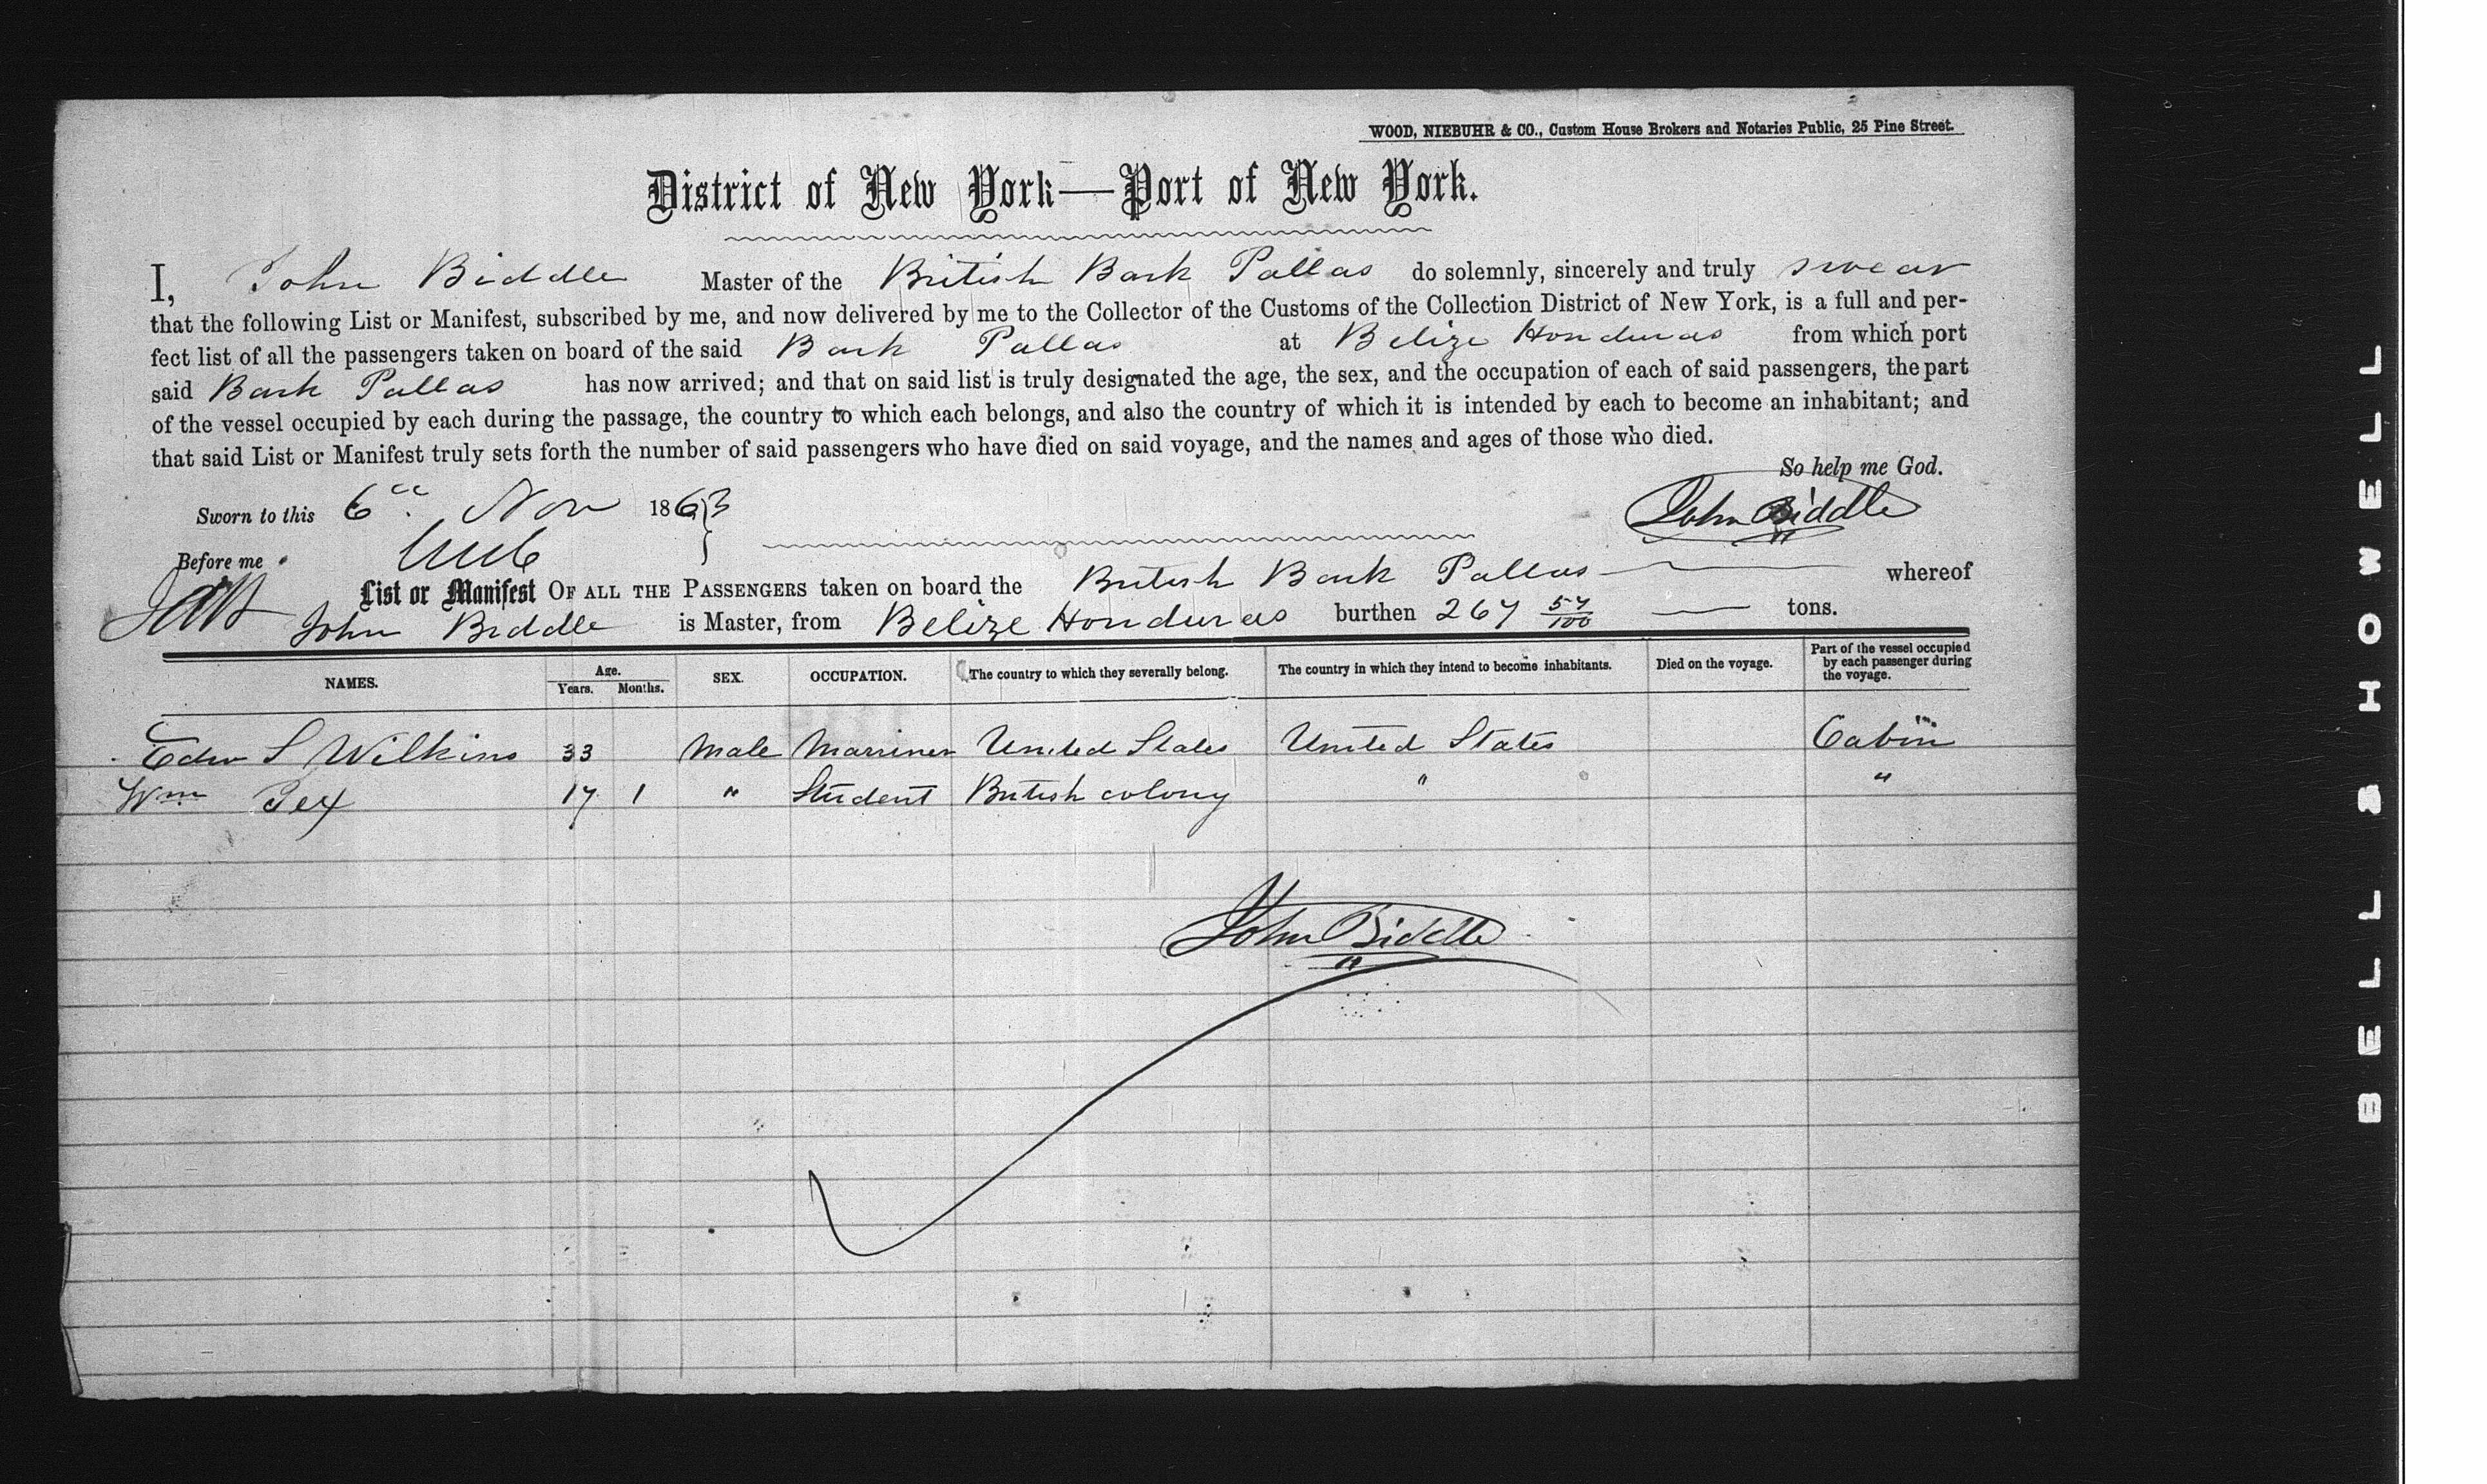 WOOD, NIEBUHR & CO., Custom House Brokers and Notaries Public, 25 Pine Street.
District of New York—Port of New York.
I, John Biddle Master of the British Bark Pallas do solemnly, sincerely and truly swear
that the following List or Manifest, subscribed by me, and now delivered by me to the Collector of the Customs of the Collection District of New York, is a full and per-
fect list of all the passengers taken on board of the said Bark Pallas at Belize Honduras from which port
said Bark Pallas has now arrived; and that on said list is truly designated the age, the sex, and the occupation of each of said passengers, the part
of the vessel occupied by each during the passage, the country to which each belongs, and also the country of which it is intended by each to become an inhabitant; and
that said List or Manifest truly sets forth the number of said passengers who have died on said voyage, and the names and ages of those who died.
So help me God.
Sworn to this 6 Nov 1863
John Biddle
Before me
List or Manifest OF ALL THE PASSENGERS taken on board the British Bark Pallas whereof
John Biddle is Master, from Belize Honduras burthen 267 57/100 tons.
NAMES. Age. Years. Months. SEX. OCCUPATION. The country to which they severally belong. The country in which they intend to become inhabitants. Died on the voyage. Part of the vessel occupied by each passenger during the voyage.
Edw S Wilkins 33 Male Marriner United States United States Cabin
Wm 17 1 " Student British colony " "
John Biddle
BELL & HOWELL